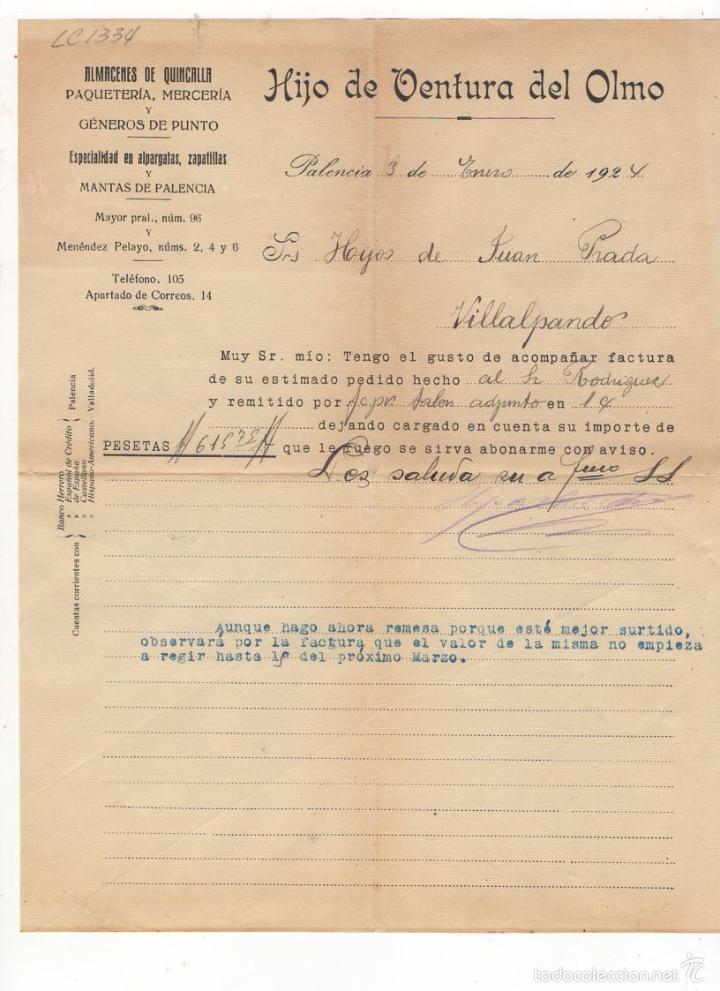 LC1334
ALMACENES DE QUINCALLA
PAQUETERÍA, MERCERÍA
Y
GÉNEROS DE PUNTO
Especialidad en alpargatas, zapatillas
Y
MANTAS DE PALENCIA
Mayor pral., núm. 96
Y
Menéndez Pelayo, núms. 2, 4 y 6
Teléfono, 105
Apartado de Correos, 14
Hijo de Ventura del Olmo
Palencia 3 de Enero de 1924
Srs Hijos de Juan Prada
Villalpando
Muy Sr. mío: Tengo el gusto de acompañar factura
de su estimado pedido hecho al Sr Rodriguez
y remitido por talon adjunto en 14
dejando cargado en cuenta su importe de
PESETAS //615 75// que le ruego se sirva abonarme con aviso.
Les saluda su a SS
Cuentas corrientes con
Banco Herrero
» Español de Crédito
» de España
» Castellano
» Hispano-Americano.
Palencia
Valladolid.
Aunque hago ahora remesa porque esté mejor surtido,
observará por la factura que el valor de la misma no empieza
a regir hasta 15 del próximo Marzo.
todocoleccion.net